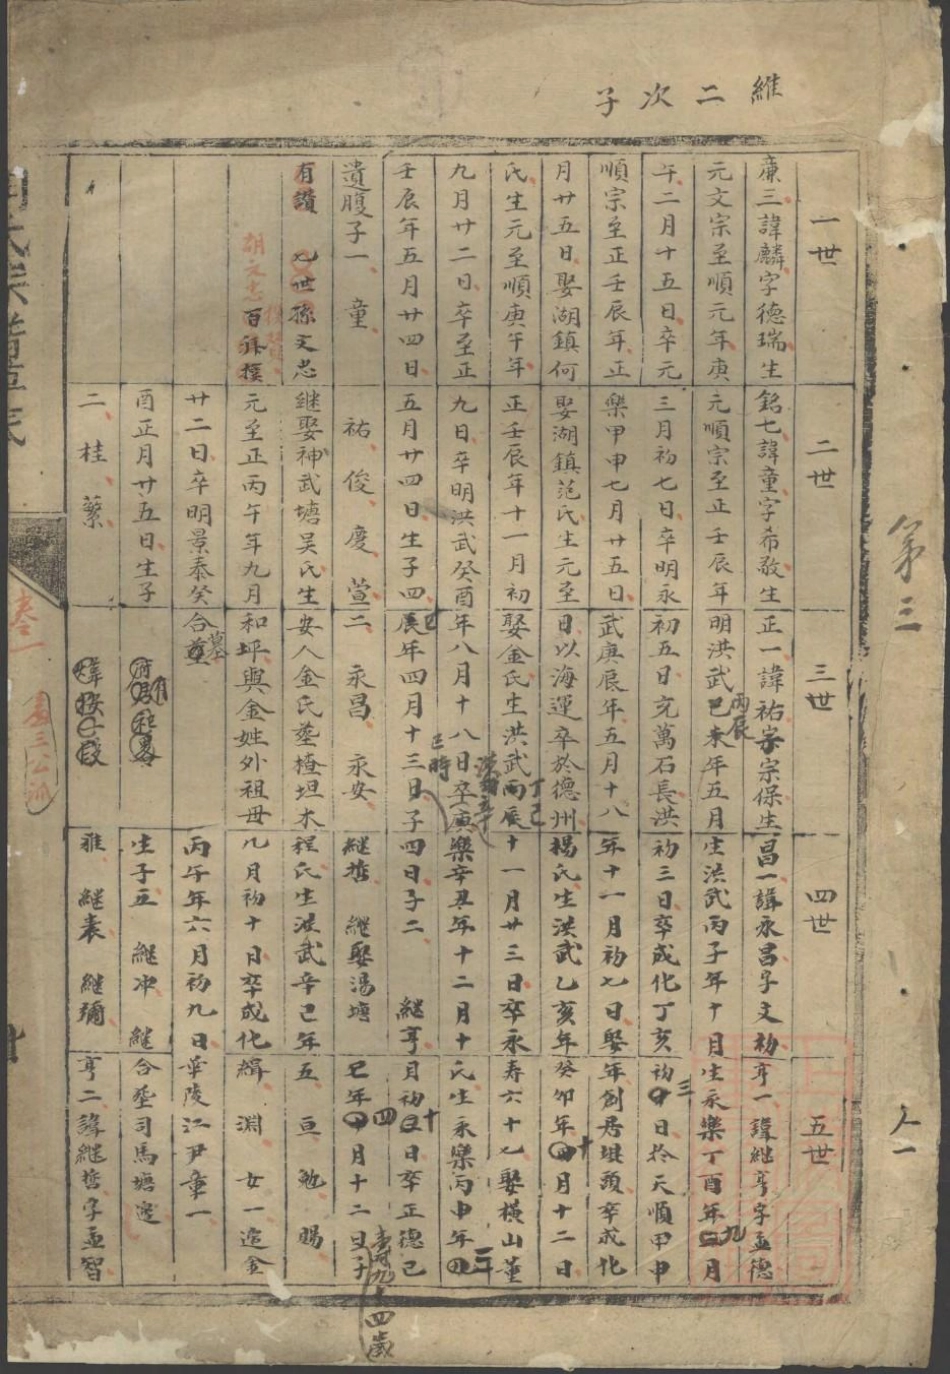 維二次子
一世
廉三諱麟字德瑞生
元文宗至順元年庚
午二月十五日卒元
順宗至正壬辰年正
月廿五日娶湖鎮何
氏生元至順庚午年
九月廿二日卒至正
壬辰年五月廿四日
遺腹子一 童
有讚 九世孫文忠
胡文忠 百拜撰
二世
銘七諱童字希敬生
元順宗至正壬辰年
三月初七日卒明永
樂甲申七月廿五日
娶湖鎮范氏生元至
正壬辰年十一月初
九日卒明洪武癸酉
五月廿四日生子四
祐 俊 慶 萱
继娶神武塘吴氏生
元至正丙午年九月
廿二日卒明景泰癸
酉正月廿五日生子
二 桂 蘩
三世
正一諱祐字宗保生
明洪武丙辰年五月
初五日充萬石長洪
武庚辰年五月十八
日以海運卒於德州
娶金氏生洪武丙辰
丁巳
年八月十八日卒庚
巳時
辰年四月十三日子
二 永昌 永安
安人金氏塟楂坦木
和坪與金姓外祖母
合墓
四世
昌一諱永昌字文勅
生洪武丙子年十月
初三日卒成化丁亥
年十一月初七日娶
楊氏生洪武乙亥年
十一月廿三日卒永
樂辛丑年十二月十
四日子二 継亨
継哲 継娶湯塘
程氏生洪武辛巳年
九月初十日卒成化
丙午年六月初九日
生子五 継冲 継
雅 継表 継彌
五世
亨一諱継亨字孟德
生永樂丁酉年九月
初三日於天順甲申
年創居垻頭卒成化
癸卯年十月十二日
壽六十七娶橫山董
氏生永樂丙申年二
月初十日卒正德己
巳年四月十二日子
壽九十四歲
五 亘 勉 賜
緝 淵 女一適金
華陵江尹章一
合塟司馬塘邊
亨二諱継哲字孟智
第三
卷一